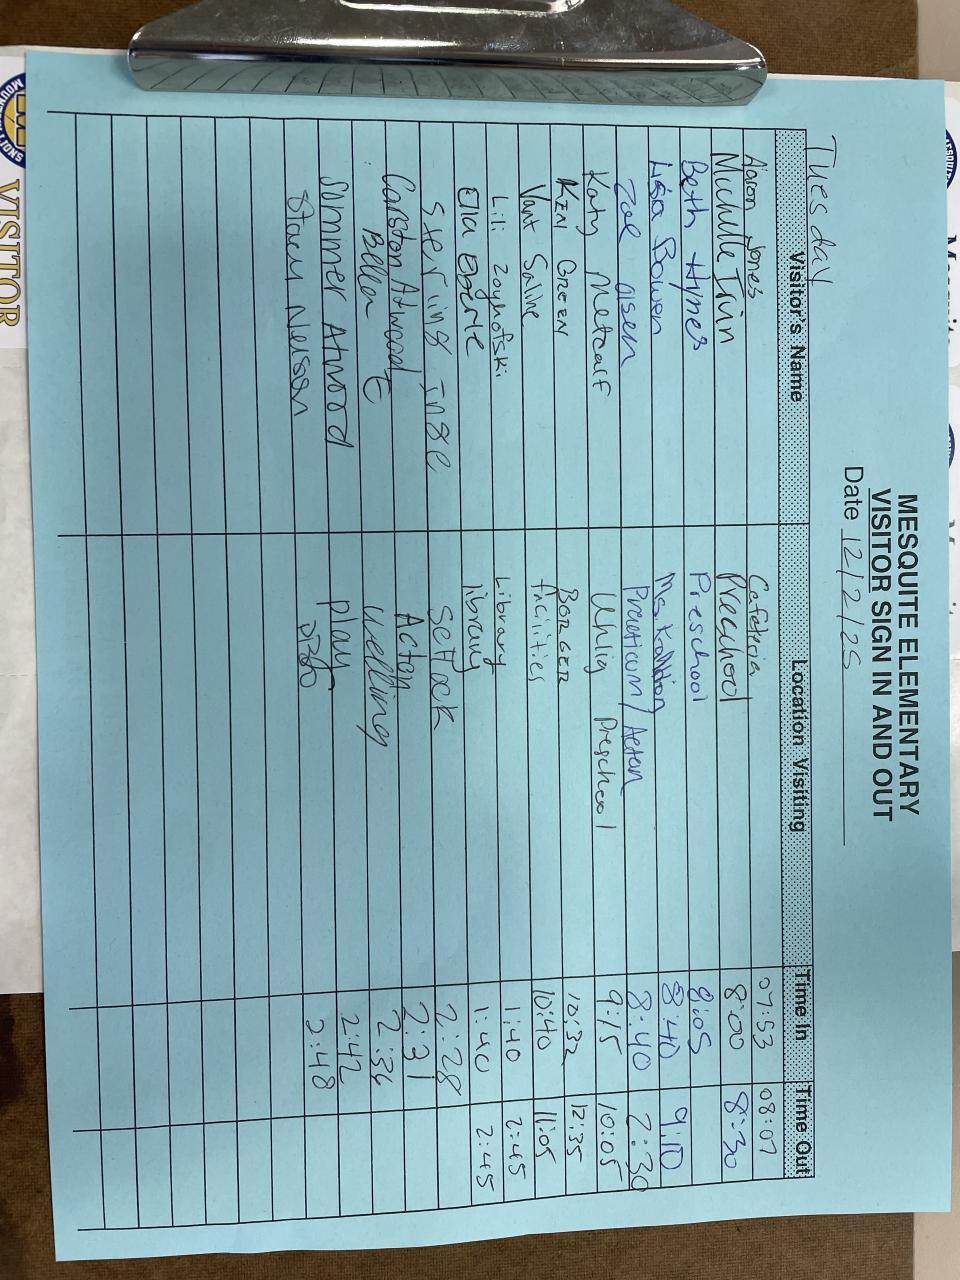 MESQUITE ELEMENTARY
VISITOR SIGN IN AND OUT
Date 12/2/25
Tuesday
Visitor's Name Location Visiting Time In Time Out
Aaron Jones Cafeteria 07:53 08:07
Michelle Irvin Preschool 8:00 8:30
Beth Hynes Preschool 8:05
Lisa Bowen 8:40 9:10
Zoe Olsen Practicum/Acton 8:40 2:30
Katy Metcalf Uhlig Preschool 9:15 10:05
KEN GREEN BORGER 10:32 12:35
Vant Saline facilities 10:40 11:05
Lili Zoyhofski Library 1:40 2:45
Ella Eberle library 1:40 2:45
Sterling Inge Setlock 2:28
Carston Atwood Acton 2:31
Bella E Welling 2:36
Sommer Atwood play 2:42
Stacy Nelson 2:48
VISITOR